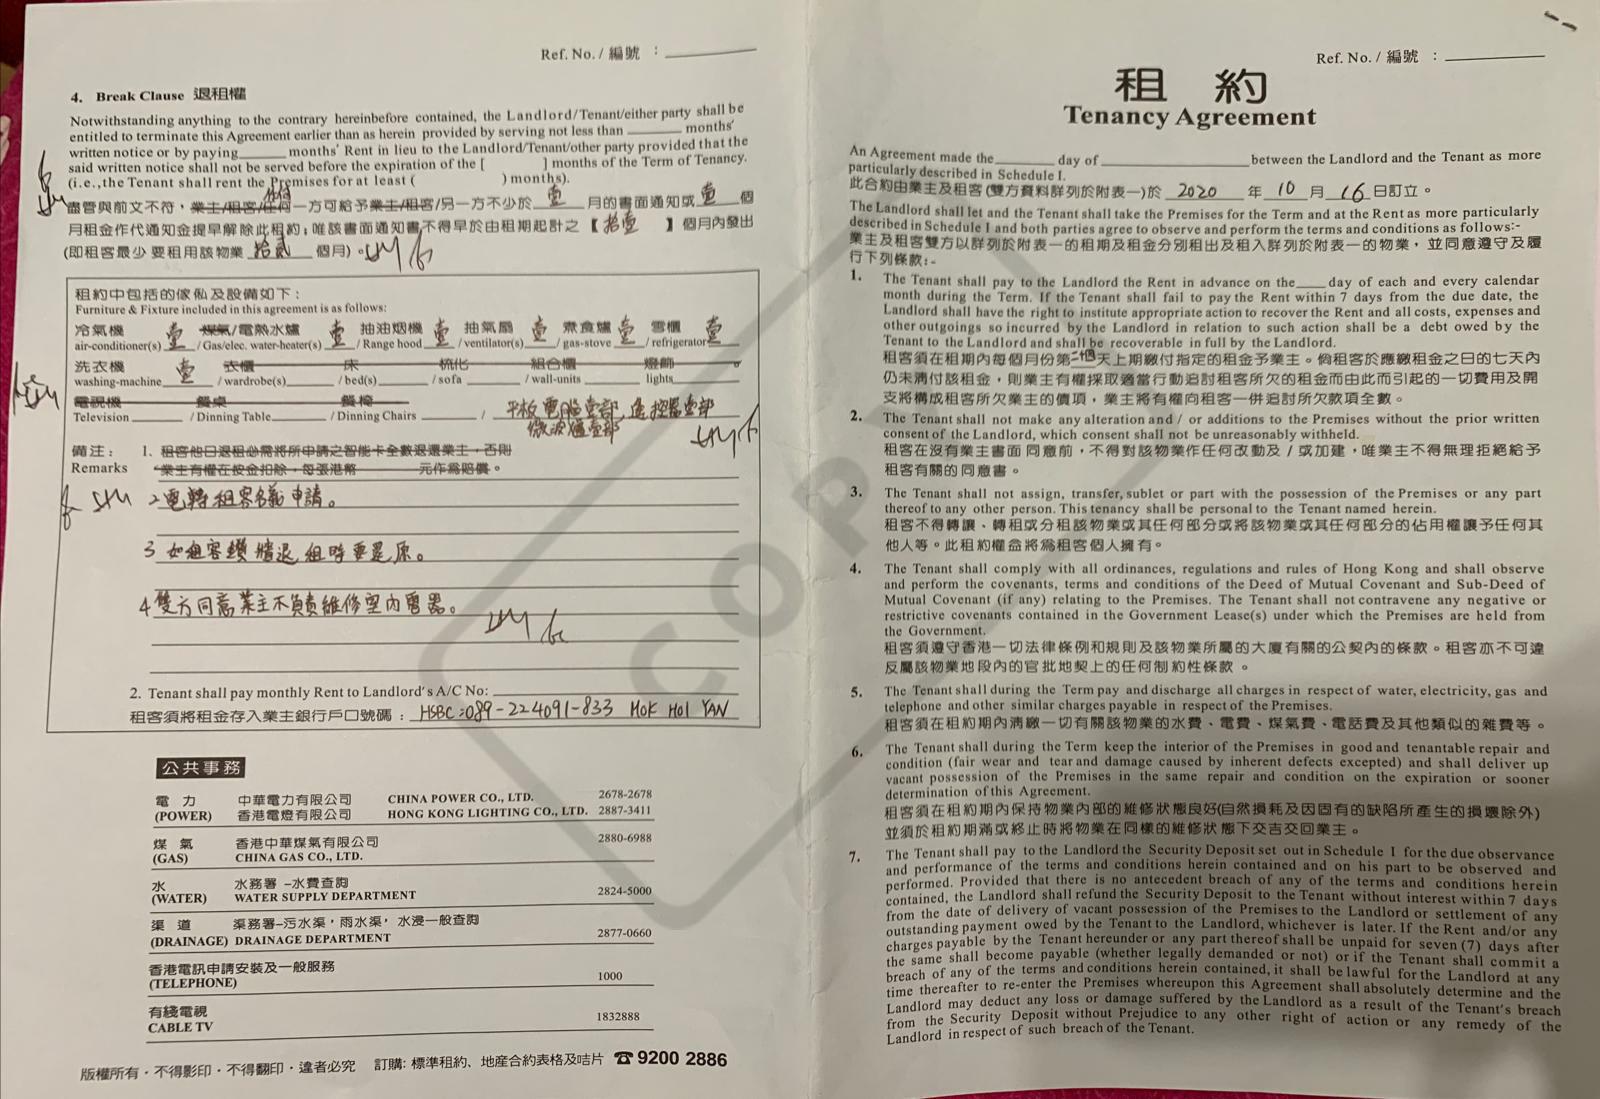 Ref. No. / 編號 ：
4. Break Clause 退租權
Notwithstanding anything to the contrary hereinbefore contained, the Landlord/Tenant/either party shall be
entitled to terminate this Agreement earlier than as herein provided by serving not less than ________ months'
written notice or by paying_______ months' Rent in lieu to the Landlord/Tenant/other party provided that the
said written notice shall not be served before the expiration of the [ ] months of the Term of Tenancy.
(i.e.,the Tenant shall rent the Premises for at least ( ) months).
盡管與前文不符，業主/租客/任何一方可給予業主/租客/另一方不少於 壹 月的書面通知或 壹 個
月租金作代通知金提早解除此租約；唯該書面通知書不得早於由租期起計之【 拾壹 】個月內發出
(即租客最少要租用該物業 拾貳 個月)。
租約中包括的傢俬及設備如下：
Furniture & Fixture included in this agreement is as follows:
冷氣機 壹 煤氣/電熱水爐 壹 抽油烟機 壹 抽氣扇 壹 煮食爐 壹 雪櫃 壹
air-conditioner(s) / Gas/elec. water-heater(s) / Range hood / ventilator(s) / gas-stove / refrigerator
洗衣機 壹 衣櫃 床 梳化 組合櫃 燈飾
washing-machine / wardrobe(s) / bed(s) / sofa / wall-units lights
電視機 餐桌 餐椅 平板電腦壹部, 遙控器壹部
Television / Dinning Table / Dinning Chairs / 微波爐壹部
備注： 1. 租客他日退租必需將所申請之智能卡全數退還業主，否則
Remarks 業主有權在按金扣除，每張港幣 元作為賠償。
2 電轉租客名義申請。
3 如租客 退租時要還原。
4 雙方同意業主不負責維修室內電器。
2. Tenant shall pay monthly Rent to Landlord's A/C No:
租客須將租金存入業主銀行戶口號碼： HSBC:089-224091-833 MOK HOI YAN
公共事務
電 力 中華電力有限公司 CHINA POWER CO., LTD. 2678-2678
(POWER) 香港電燈有限公司 HONG KONG LIGHTING CO., LTD. 2887-3411
煤 氣 香港中華煤氣有限公司 2880-6988
(GAS) CHINA GAS CO., LTD.
水 水務署 –水費查詢
(WATER) WATER SUPPLY DEPARTMENT 2824-5000
渠 道 渠務署–污水渠，雨水渠，水浸一般查詢
(DRAINAGE) DRAINAGE DEPARTMENT 2877-0660
香港電訊申請安裝及一般服務
(TELEPHONE) 1000
有綫電視
CABLE TV 1832888
版權所有・不得影印・不得翻印・違者必究 訂購: 標準租約、地產合約表格及咭片 ☎ 9200 2886
Ref. No. / 編號 ：
租 約
Tenancy Agreement
An Agreement made the________ day of ____________________between the Landlord and the Tenant as more
particularly described in Schedule I.
此合約由業主及租客(雙方資料詳列於附表一)於 2020 年 10 月 16 日訂立。
The Landlord shall let and the Tenant shall take the Premises for the Term and at the Rent as more particularly
described in Schedule I and both parties agree to observe and perform the terms and conditions as follows:-
業主及租客雙方以詳列於附表一的租期及租金分別租出及租入詳列於附表一的物業，並同意遵守及履
行下列條款:-
1. The Tenant shall pay to the Landlord the Rent in advance on the____ day of each and every calendar
month during the Term. If the Tenant shall fail to pay the Rent within 7 days from the due date, the
Landlord shall have the right to institute appropriate action to recover the Rent and all costs, expenses and
other outgoings so incurred by the Landlord in relation to such action shall be a debt owed by the
Tenant to the Landlord and shall be recoverable in full by the Landlord.
租客須在租期內每個月份第 天上期繳付指定的租金予業主。倘租客於應繳租金之日的七天內
仍未清付該租金，則業主有權採取適當行動追討租客所欠的租金而由此而引起的一切費用及開
支將構成租客所欠業主的債項，業主將有權向租客一併追討所欠款項全數。
2. The Tenant shall not make any alteration and / or additions to the Premises without the prior written
consent of the Landlord, which consent shall not be unreasonably withheld.
租客在沒有業主書面同意前，不得對該物業作任何改動及 / 或加建，唯業主不得無理拒絕給予
租客有關的同意書。
3. The Tenant shall not assign, transfer, sublet or part with the possession of the Premises or any part
thereof to any other person. This tenancy shall be personal to the Tenant named herein.
租客不得轉讓、轉租或分租該物業或其任何部分或將該物業或其任何部分的佔用權讓予任何其
他人等。此租約權益將為租客個人擁有。
4. The Tenant shall comply with all ordinances, regulations and rules of Hong Kong and shall observe
and perform the covenants, terms and conditions of the Deed of Mutual Covenant and Sub-Deed of
Mutual Covenant (if any) relating to the Premises. The Tenant shall not contravene any negative or
restrictive covenants contained in the Government Lease(s) under which the Premises are held from
the Government.
租客須遵守香港一切法律條例和規則及該物業所屬的大廈有關的公契內的條款。租客亦不可違
反屬該物業地段內的官批地契上的任何制約性條款。
5. The Tenant shall during the Term pay and discharge all charges in respect of water, electricity, gas and
telephone and other similar charges payable in respect of the Premises.
租客須在租約期內清繳一切有關該物業的水費、電費、煤氣費、電話費及其他類似的雜費等。
6. The Tenant shall during the Term keep the interior of the Premises in good and tenantable repair and
condition (fair wear and tear and damage caused by inherent defects excepted) and shall deliver up
vacant possession of the Premises in the same repair and condition on the expiration or sooner
determination of this Agreement.
租客須在租約期內保持物業內部的維修狀態良好(自然損耗及因固有的缺陷所產生的損壞除外)
並須於租約期滿或終止時將物業在同樣的維修狀態下交吉交回業主。
7. The Tenant shall pay to the Landlord the Security Deposit set out in Schedule I for the due observance
and performance of the terms and conditions herein contained and on his part to be observed and
performed. Provided that there is no antecedent breach of any of the terms and conditions herein
contained, the Landlord shall refund the Security Deposit to the Tenant without interest within 7 days
from the date of delivery of vacant possession of the Premises to the Landlord or settlement of any
outstanding payment owed by the Tenant to the Landlord, whichever is later. If the Rent and/or any
charges payable by the Tenant hereunder or any part thereof shall be unpaid for seven (7) days after
the same shall become payable (whether legally demanded or not) or if the Tenant shall commit a
breach of any of the terms and conditions herein contained, it shall be lawful for the Landlord at any
time thereafter to re-enter the Premises whereupon this Agreement shall absolutely determine and the
Landlord may deduct any loss or damage suffered by the Landlord as a result of the Tenant's breach
from the Security Deposit without Prejudice to any other right of action or any remedy of the
Landlord in respect of such breach of the Tenant.
COPY